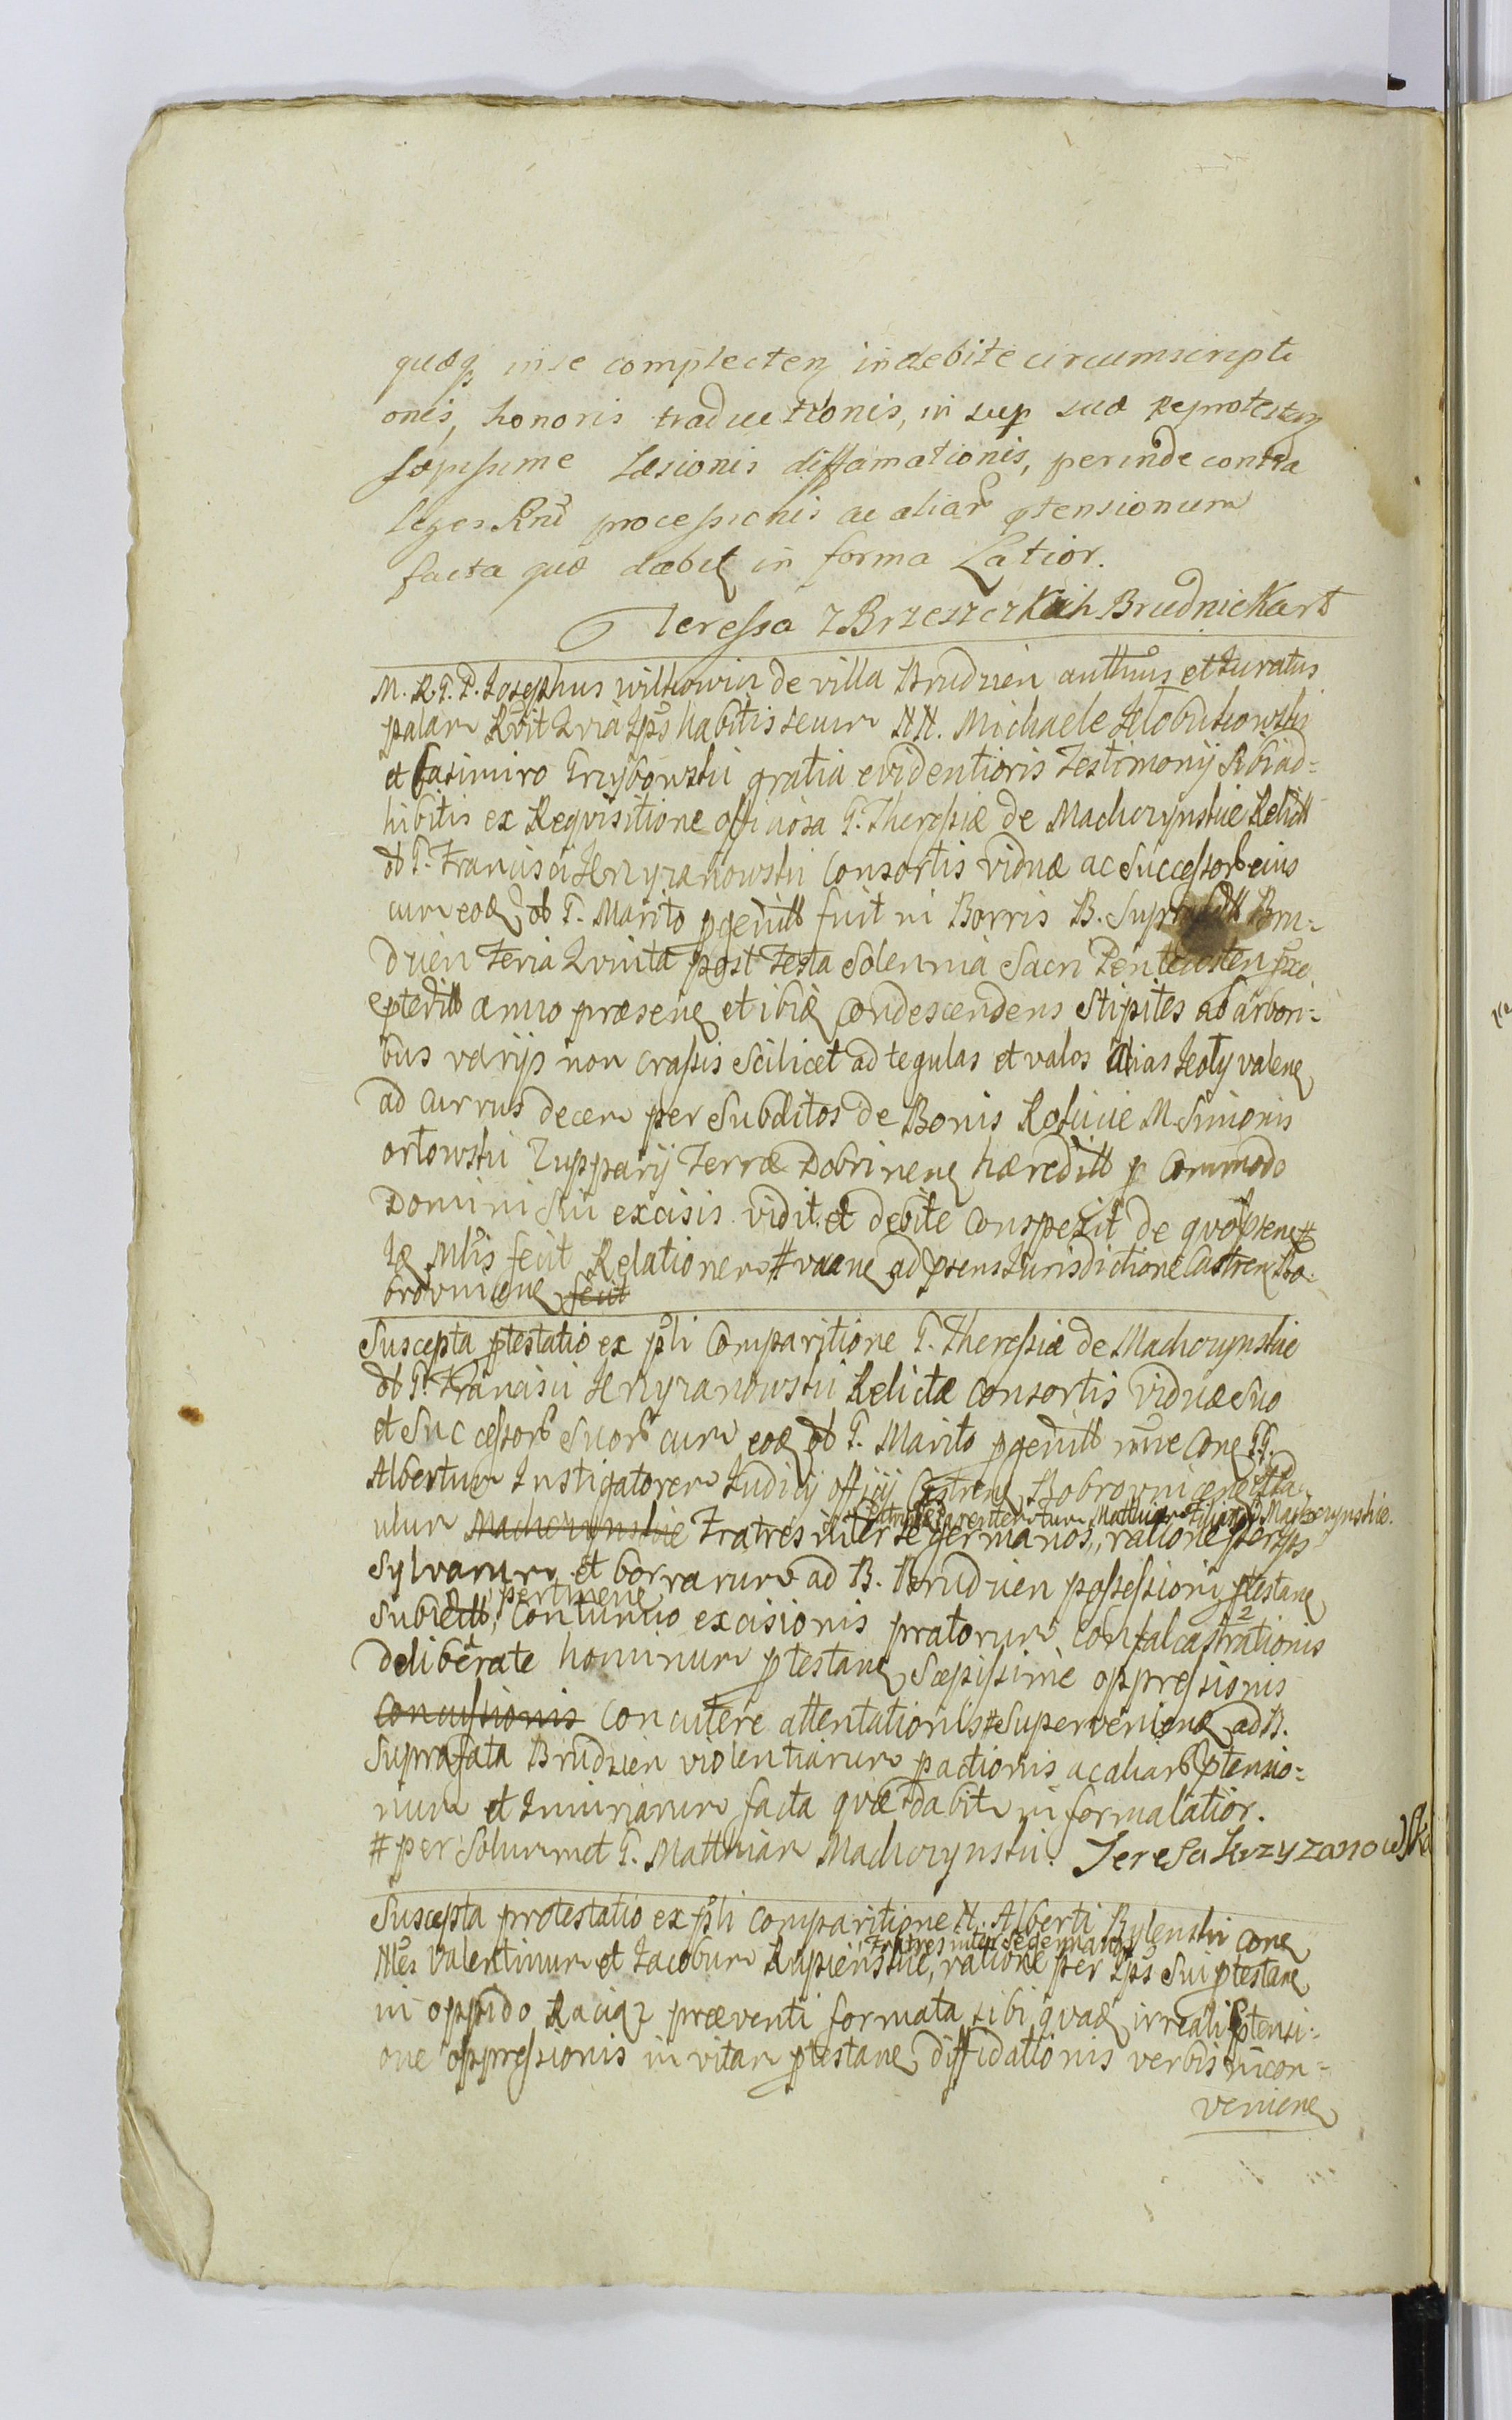 quæq in se complecten indebite circumscripti
onis, honoris traductionis, in sup suæ Reprotestan
sæpissime Læsionis diffamationis, perinde contra
leges Rni processionis ac aliar ptensionum
facta quæ dabit in forma Latior.
Teressa z Brzeszczkich Brudnicka
M. R. G. P. Josephus Witkowicz de villa Brudzien autthus et Juratus
palam Rvit Qria Ips habitis secum NN. Michaele Kłobukowski
et Casimiro Grzybowski gratia evidentioris Testimonij Sibi ad=
hibitis ex Requisitione officiosa G. Theressiæ de Machczynskie Relict
ol G. Francisci Krzyzanowski Consortis viduæ ac Successor eius
cum eod ol G. Marito pgenit fuit in Borris B. Supra Bru=
dzien Feria Qvinta post Festa Solennia Sacri Pentecosten pxe
pterit anno præsen et ibid Condescendens Stipites ab arbori=
bus varijs non crassis Scilicet ad tegulas et valos alias Koły valen
ad currus decem per Subditos de Bonis M. Simonis
orłowski Zupparij Terræ Dobrinen hæredit p Commodo
Domini Sui excisis vidit et debite Conspexit de quo psen#
Id Mlis fecit Relationem # ad psens Jurisdictione Castren Bo=
brownicen fecit
Suscepta ptestatio ex psli Comparitione G. Theressiæ de Machczynskie
ol G. Francisci Krzyzanowski Relictæ Consortis viduæ Suo
et Successor Suor cum eod ol G. Marito pgenit nne Con GG.
Albertum Instigatorem Judicij officij Castren Bobrownicen
Patruum Mathiam Filium Machczynskie.
Machczynskie Fratres inter se germanos,, ratione per Ips
Sylvarum et borrarum ad B. Brudzien possessioni ptestan
pertinen
Subiect, Continuo excisionis pratorum Confalcastrationis
2
deliberate hominum ptestan Sæpissime oppressionis
Concussionis Concutere attentationis # Supervenien ad B.
Suprafata Brudzien violentiarum pactionis ac aliar ptensio=
num et Iniuriarum facta quæ dabit in forma latior.
# per Solummet G. Matthiam Machczynski. Teresa Krzyzanowska
Suscepta protestatio ex psli comparitione N. Alberti Rylenski Con
Fratres inter Se germanos
Nles Valentinum et Jacobum Rupienskie, ratione per Ips Sui ptestan
in oppido Raciąz præventi formata sibi quad irreali ptensi=
one oppressionis in vitam ptestan, diffidationis verbis incon=
venien